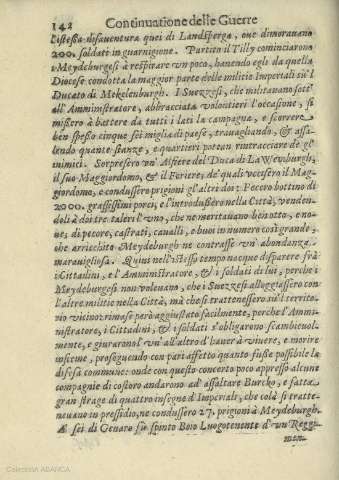 142 Continuatione delle Guerre
l'istessa disauentura quei di Landsperga, oue dimorauano
200. soldati in guarnigione. Partito il Tilly cominciarono
i Meydeburgesi à respirare vn poco, hauendo egli da quella
Diocese condotta la maggior parte delle militie Imperiali sù 'l
Ducato di Mekelenburgh. I Suezzesi, che militauano sott'
all'Amministratore, abbracciata volontieri l'occasione, si
missero à battere da tutti i laei la campagna, e scorrere
ben spesso cinque sei miglia di paese, trauagliando, & assa-
lendo quante stanze, e quartieri potean rintracciare de gl'
inimici. Sorpresero vn' Alfiere del Duca di Lawenburgh,
il suo Maggiordomo, & il Foriere, de' quali vccisero il Mag-
giordomo, e condussero prigioni gl'altri doi: Fecero bottino di
2000. grassissimi porci, e l'introdussero nella Città, venden-
doli à doi tre taleri l'vno, che ne meritauano ben otto, e no-
ue; di pecore, castrati, caualli, e buoi in numero così grande,
che arricchito Meydeburgh ne contrasse vn' abondanza
marauigliosa. Quiui nell'istesso tempo nacque disparere frà
i Cittadini, e l'Amministratore, & i soldati di lui, perche i
Meydeburgesi non voleano, che i Suezzesi alloggiassero con
l'altre militie nella Città, mà che si trattenessero sù'l territo-
rio vicino: rimase però aggiustato facilmente, perche l'Ammi-
nistratore, i Cittadini, & i soldati s'obligarono scambieuol-
mente, e giurarono l'vn'all'altro d'hauer à viuere, e morire
insieme, proseguendo con pari affetto quanto fusse possibile la
difesa commune: onde con questo concerto poco appresso alcune
compagnie di costoro andarono ad assaltare Burcko, e fatta
gran strage di quattro insegne d'Imperiali, che colà si tratte-
neuano in pressidio, ne condussero 27. prigioni à Meydeburgh.
A sei di Genaro si è spinto Boio Luogotenente d'vn Reggi-
men-
Colección ABANCA